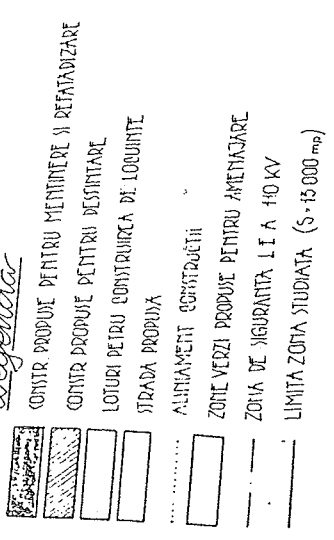 Legenda
CONSTR. PROPUSE PENTRU MENTINERE SI REFATADIZARE
CONSTR PROPUSE PENTRU DESFIINTARE
LOTURI PETRU CONSTRUIREA DE LOCUINTE
STRADA PROPUSA
ALINIAMENT CONSTRUCTII
ZONE VERZI PROPUSE PENTRU AMENAJARE
ZONA DE SIGURANTA L E A 110 KV
LIMITA ZONA STUDIATA (S=15000 mp)